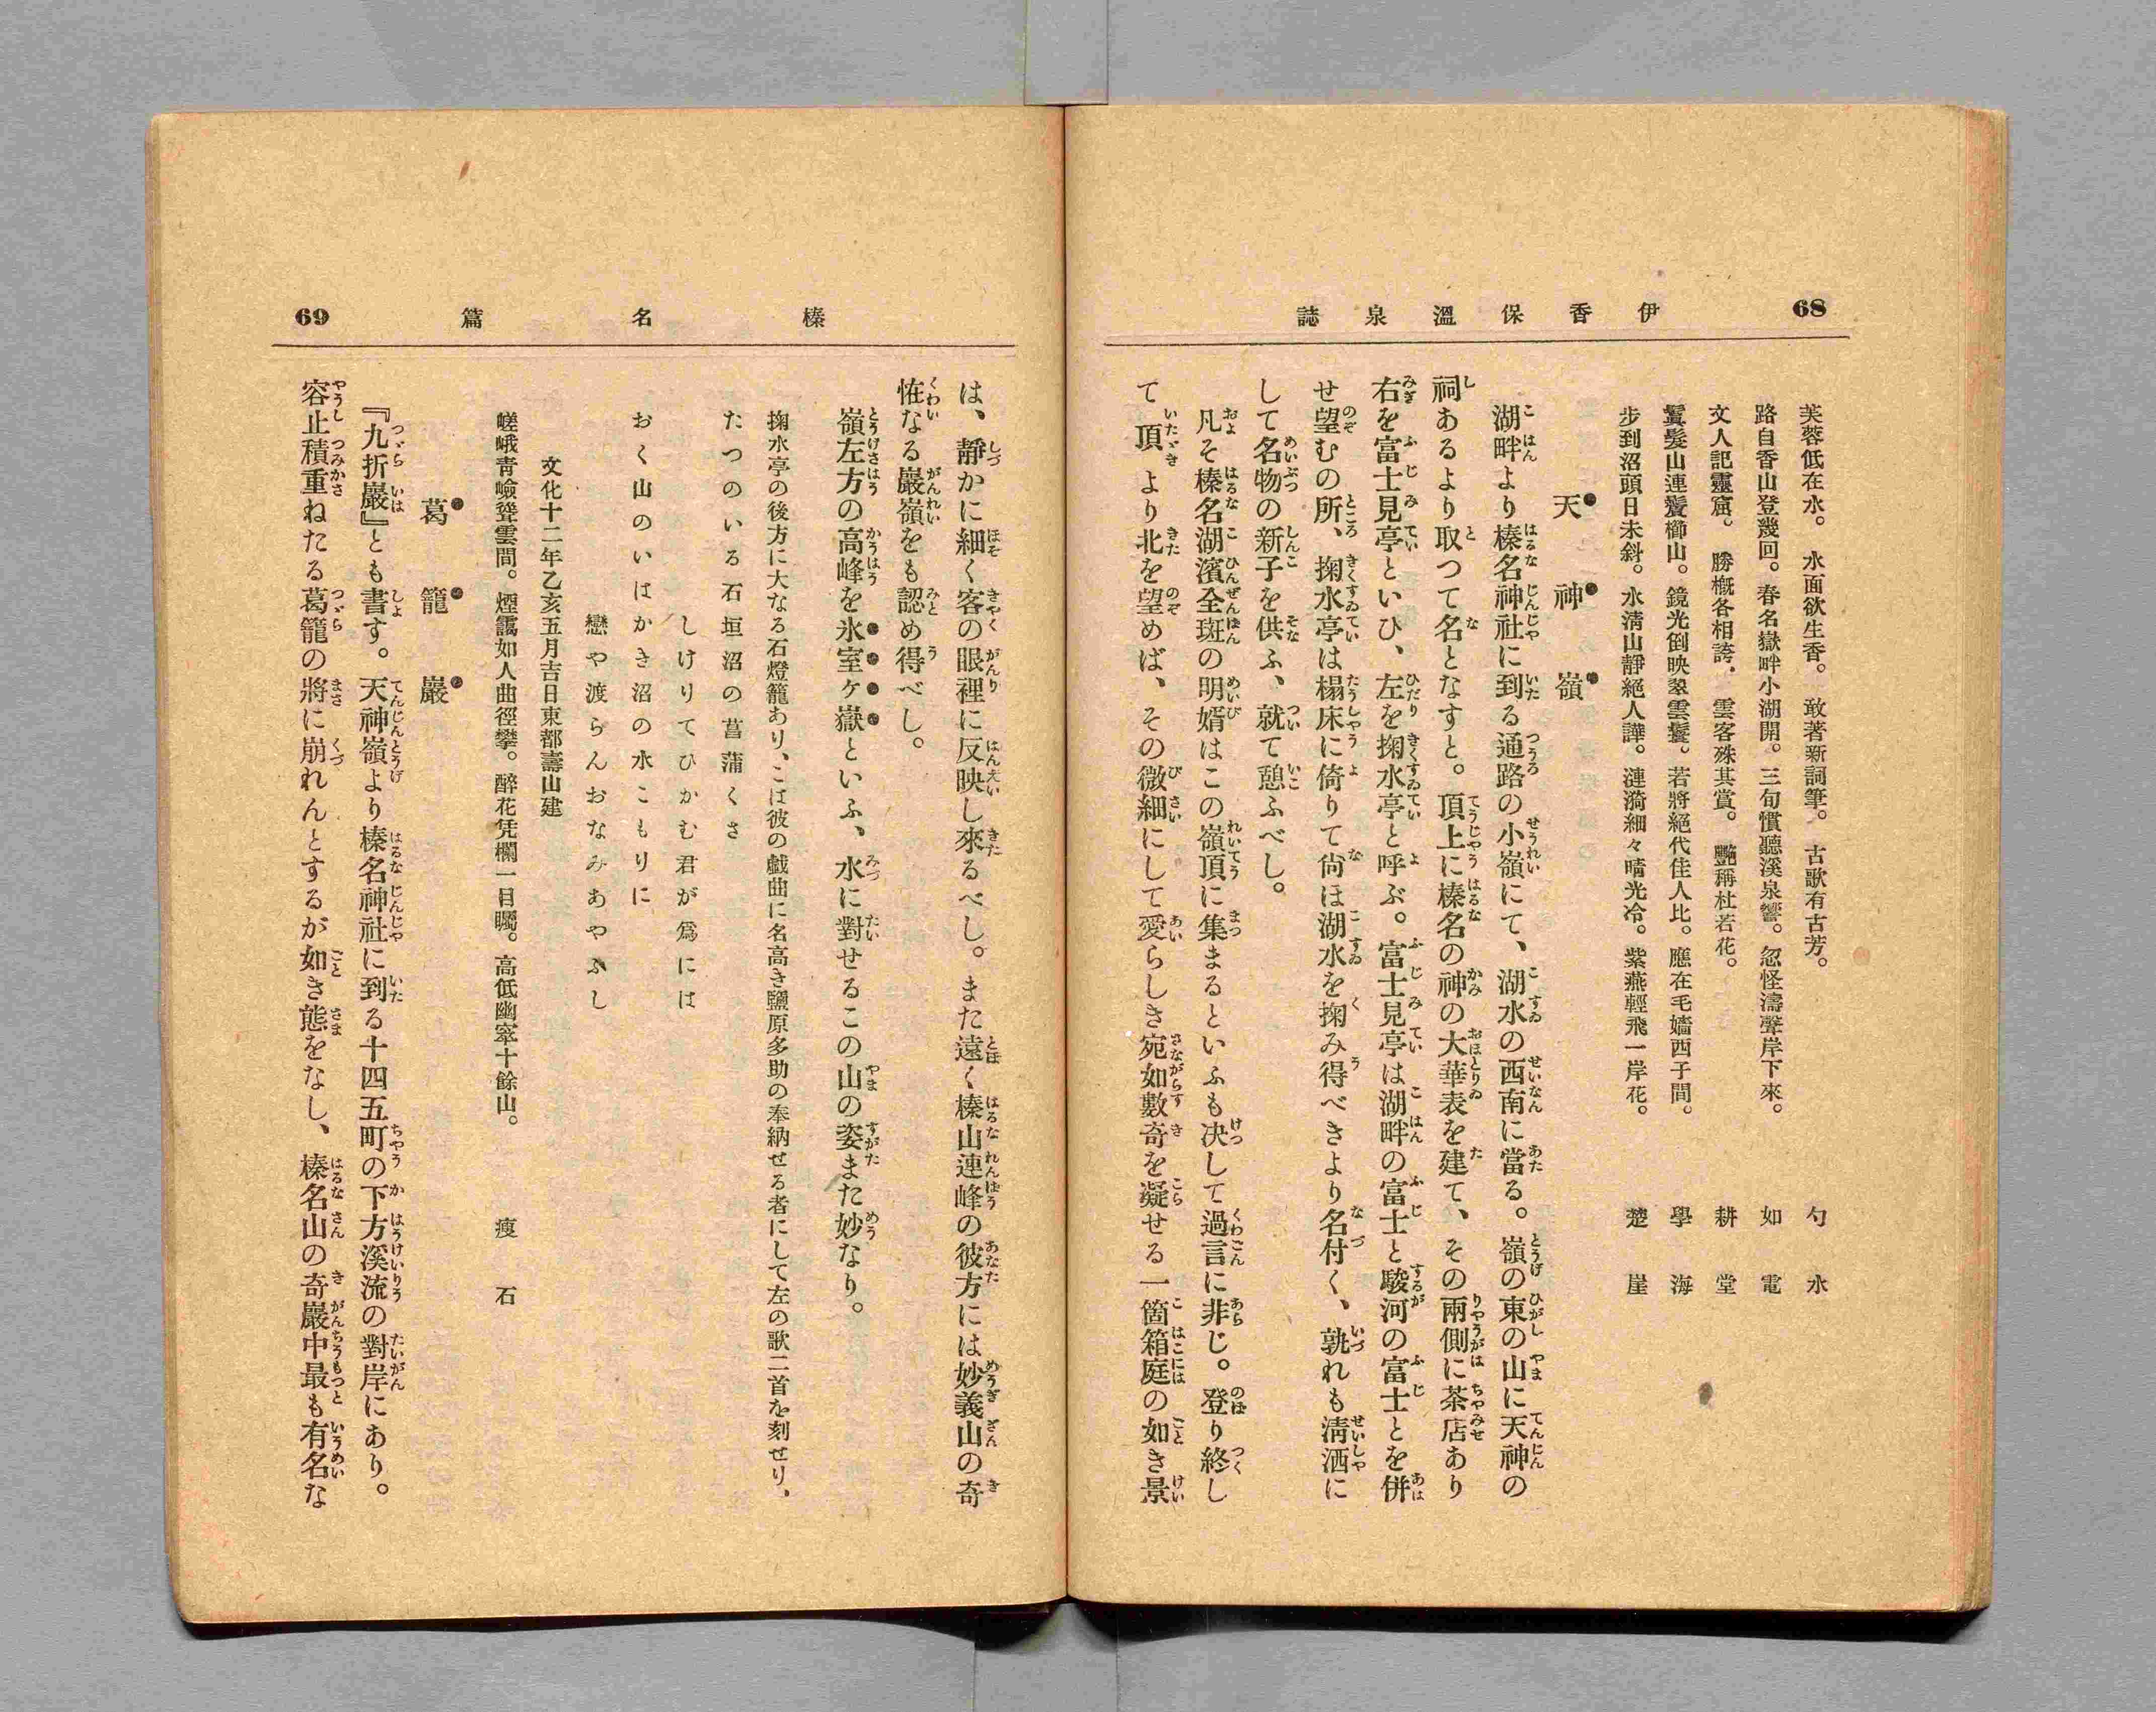 68
伊香保溫泉誌
芙蓉低在水。水面欲生香。敢著新詞筆。古歌有古芳。 勺水
路自香山登幾回。春名嶽畔小湖開。三旬慣聽溪泉響。忽怪濤聲岸下來。 如電
文人記靈窟。勝槪各相誇。雲客殊其賞。艷稱杜若花。 耕堂
鬟髮山連鬘櫛山。鏡光倒映翠雲鬟。若將絕代佳人比。應在毛嬙西子間。 學海
步到沼頭日未斜。水淸山靜絕人譁。漣漪細々晴光冷。紫燕輕飛一岸花。 楚崖
天神嶺
湖畔より榛名神社に到る通路の小嶺にて、湖水の西南に當る。嶺の東の山に天神の
祠あるより取つて名となすと。頂上に榛名の神の大華表を建て、その兩側に茶店あり
右を富士見亭といひ、左を掬水亭と呼ぶ。富士見亭は湖畔の富士と駿河の富士とを併
せ望むの所、掬水亭は榻床に倚りて尙ほ湖水を掬み得べきより名付く、孰れも淸洒に
して名物の新子を供ふ、就て憩ふべし。
凡そ榛名湖濱全斑の明媚はこの嶺頂に集まるといふも决して過言に非じ。登り終し
て頂より北を望めば、その微細にして愛らしき宛如數奇を凝せる一箇箱庭の如き景
69
榛名篇
は、靜かに細く客の眼裡に反映し來るべし。また遠く榛山連峰の彼方には妙義山の奇
恠なる巖嶺をも認め得べし。
嶺左方の高峰を氷室ヶ嶽といふ、水に對せるこの山の姿また妙なり。
掬水亭の後方に大なる石燈籠あり、こは彼の戲曲に名高き鹽原多助の奉納せる者にして左の歌二首を刻せり、
たつのいる石垣沼の菖蒲くさ
しけりてひかむ君が爲には
おく山のいはかき沼の水こもりに
戀や渡らんおなみあやふし
文化十二年乙亥五月吉日東都壽山建
嵯峨靑嶮聳雲間。煙靄如人曲徑攀。醉花凭欄一目矚。高低幽窣十餘山。 瘦石
葛籠巖
『九折巖』とも書す。天神嶺より榛名神社に到る十四五町の下方溪流の對岸にあり。
容止積重ねたる葛籠の將に崩れんとするが如き態をなし、榛名山の奇巖中最も有名な